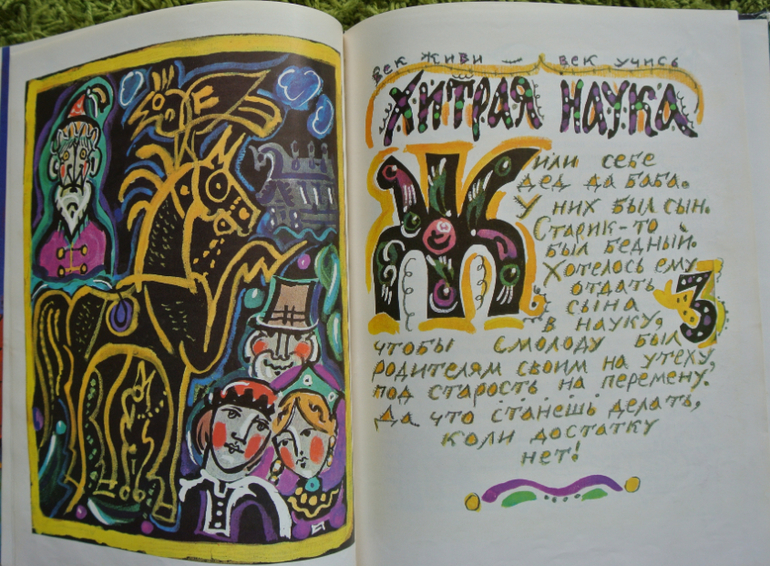 век живи — век учись
ХИТРАЯ НАУКА
Жили себе
дед да баба.
У них был сын.
Старик-то
был бедный.
Хотелось ему
отдать
сына
в науку,
3
чтобы смолоду был
родителям своим на утеху,
под старость на перемену.
Да что станешь делать,
коли достатку
нет!